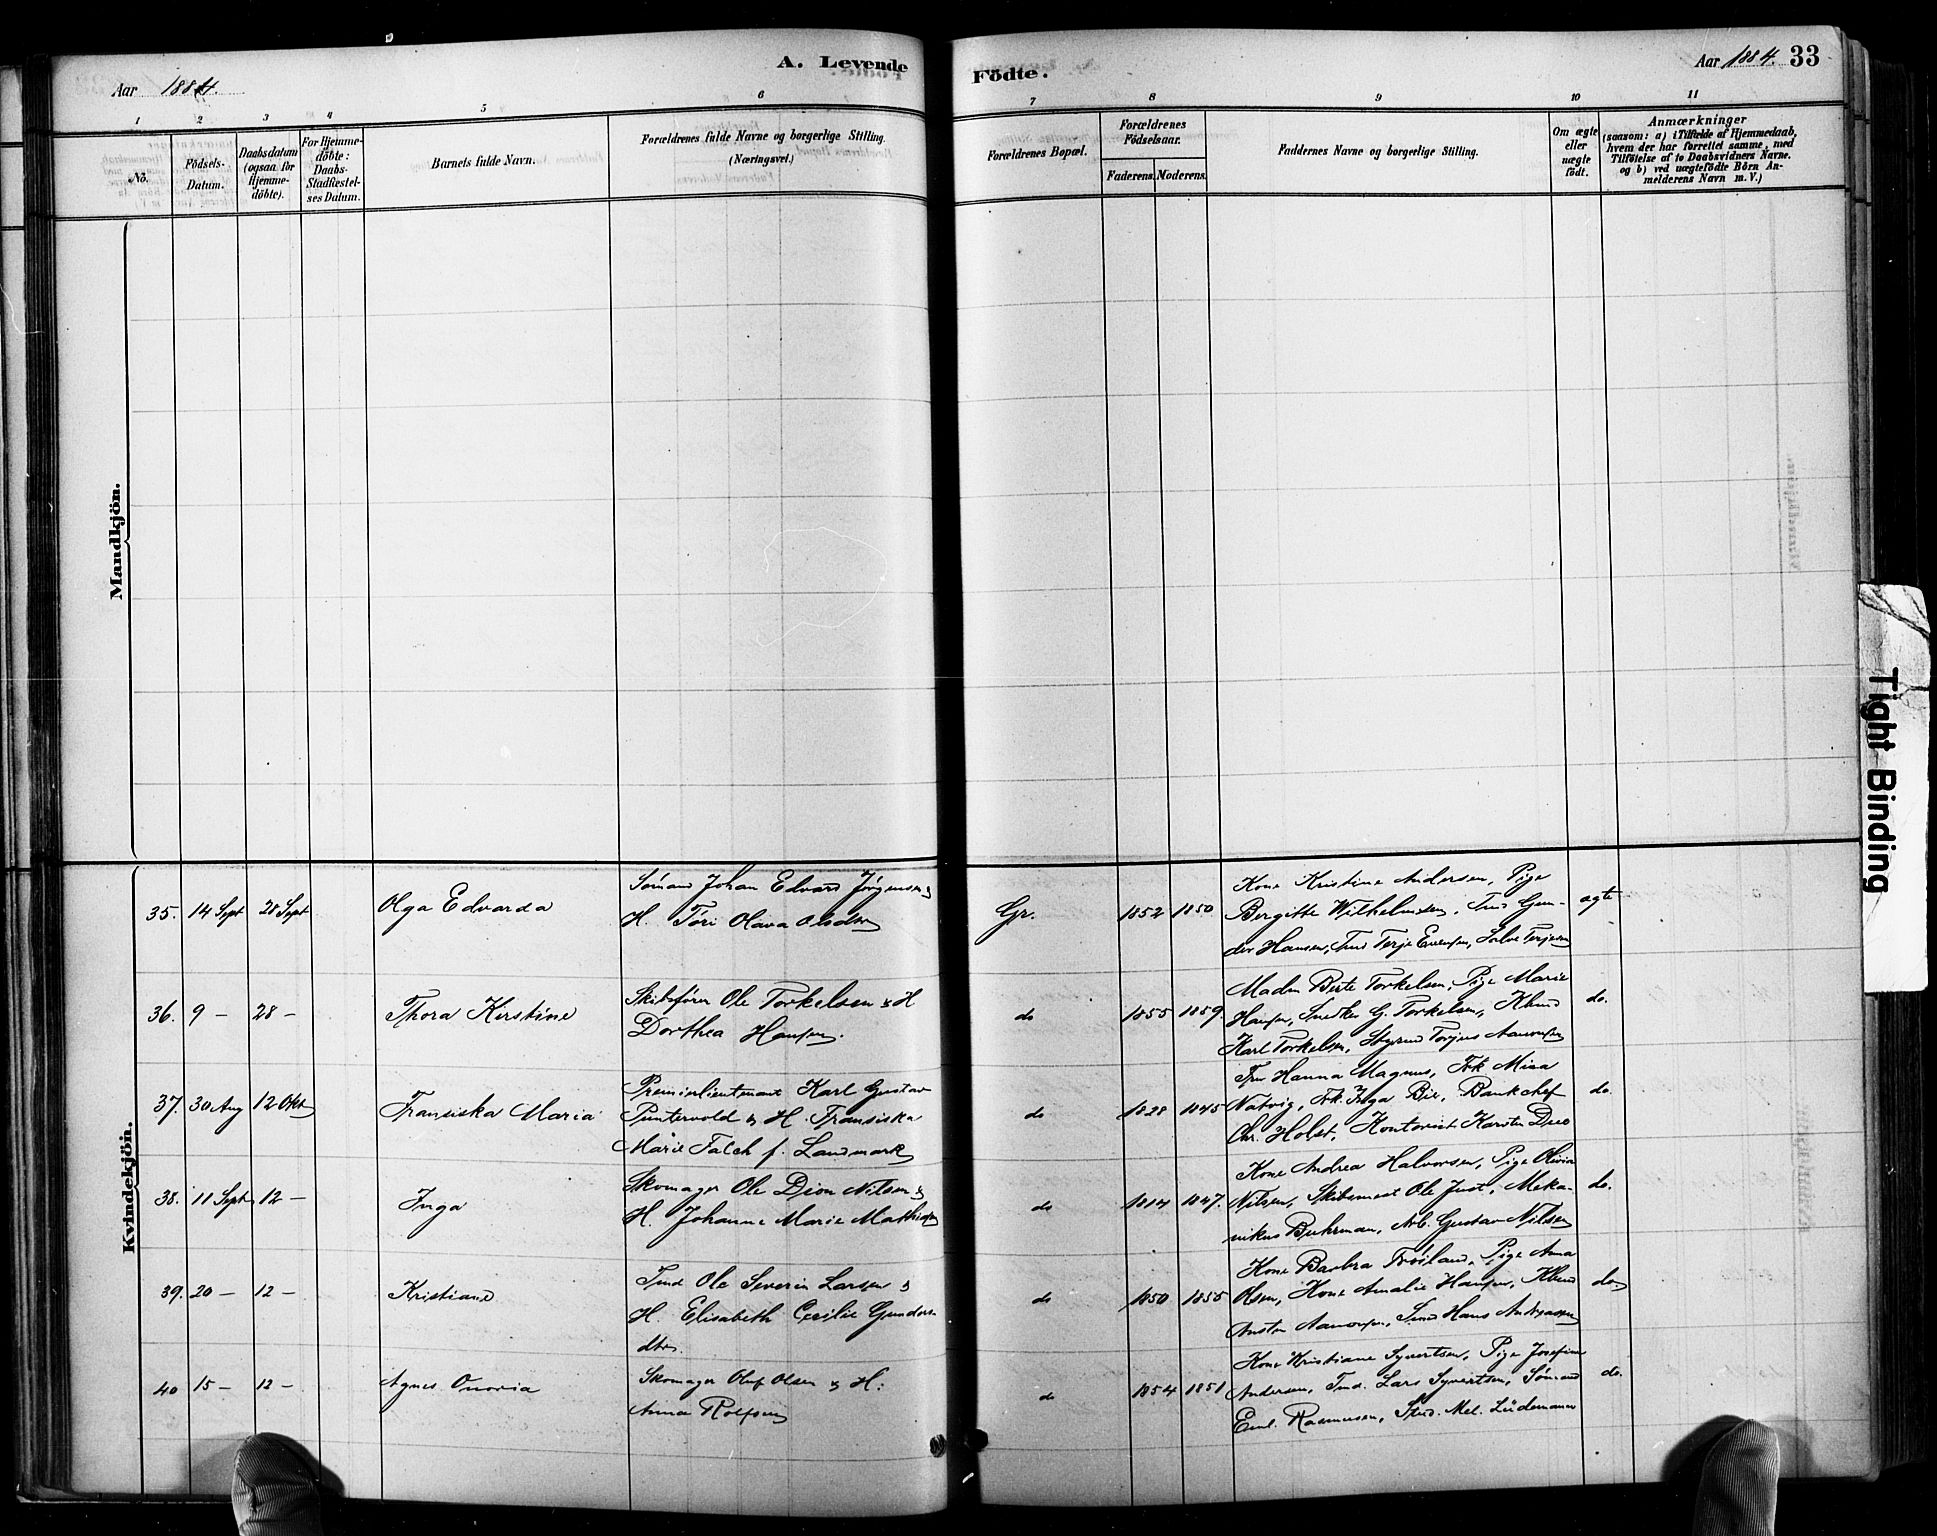 A. Levende
Aar 1884.
1 2 3 4 5 6
No.
Födsels-
Datum.
Daabsdatum
(ogsaa for
Hjemme-
döbte).
For Hjemme-
döbte:
Daabs-
Stadfæstel-
ses Datum.
Barnets fulde Navn.
Forældrenes fulde Navne og borgerlige Stilling.
(Næringsvei.)
Mandkjön.
Kvindekjön.
35. 14 Sept 28 Sept Olga Edvarda
Sömand Johan Edvard Jörgensen &
H. Töri Olava Olsdtr
36. 9 — 28 — Thora Kirstine
Skibsförer Ole Torkelsen & H
Dorthea Hansen.
37. 30 Aug 12 Okt Fransiska Maria
Premierlieutenant Karl Gustav
Puntervold & H. Fransiska
Marie Falch f. Landmark
38. 11 Sept 12 — Inga
Skomager Ole Dion Nilsen &
H. Johanne Marie Mathisen
39. 20 — 12 — Kristiane
Tmd Ole Severin Larsen &
H. Elisabeth Cecilie Gunders
dtr.
40 15 — 12 — Agnes Onovia
Skomager Oluf Olsen & H:
Anna Rolfsen
Födte.
Aar 1884. 33
7 8 9 10 11
Forældrenes Bopæl.
Forældrenes
Födselsaar.
Faderens. Moderens.
Faddernes Navne og borgerlige Stilling.
Om ægte
eller
uægte
födt.
Anmærkninger
(saasom: a) i Tilfælde af Hjemmedaab,
hvem der har forrettet samme, med
Tilföielse af to Daabsvidners Navne.
og b) ved uægtefödte Börn An-
melderens Navn m. V.)
Gr. 1852 1850
Kone Kristine Andersen, Pige
Bergitte Wilhelmsen, Tmd Gun-
der Hansen, Tmd Terje Evensen, Salve Terjesen
ægte
do 1855 1859.
Madm Berte Torkelsen, Pige Marie
Hansen, Snedker G. Torkelsen,
Karl Torkelsen, Styrmd Torjus Aanonsen
do.
do 1828 1845
Fru Hanna Magnus, Frk Mina
Natvig, Frk. Inga Bie, Bankchef
Chr. Holst, Kontorist Karsten Due
do.
do 1814 1847.
Kone Andrea Halvorsen, Pige Olivia
Nilsen, Skibsmest Ole Just, Meka-
nikus Buhrman, Arb. Gustav Nilsen
do.
do 1850 1855
Kone Barbra Tröiland, Pige Anna
Olsen, Kone Amalie Hansen,
Aanonsen, Tmd Hans Andreassen
do.
do 1854 1851
Kone Kristiane Syvertsen, Pige Josefine
Andersen, Tmd. Lars Syvertsen, Sömand
Emil Rasmussen, Stud. Med. Lüdemann
do.
Tight Binding